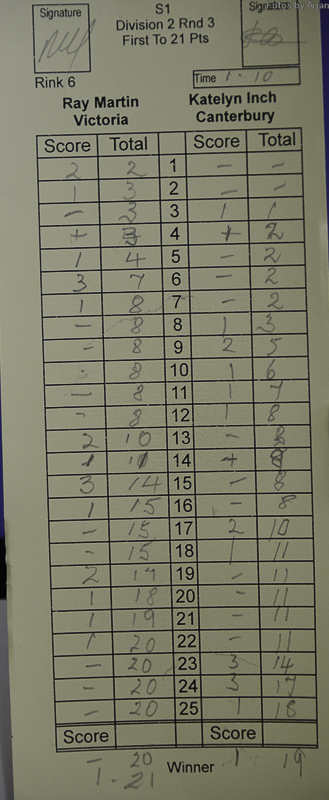 Photos by Arian
Signature S1 Signature
Division 2 Rnd 3
First To 21 Pts
Rink 6 Time 1.10
Ray Martin Katelyn Inch
Victoria Canterbury
Score Total Score Total
2 2 1 - -
1 3 2 - -
- 3 3 1 1
+ 3 4 + 2
1 4 5 - 2
3 7 6 - 2
1 8 7 - 2
- 8 8 1 3
- 8 9 2 5
- 8 10 1 6
- 8 11 1 7
- 8 12 1 8
2 10 13 - 8
1 11 14 + 8
3 14 15 - 8
1 15 16 - 8
- 15 17 2 10
- 15 18 1 11
2 17 19 - 11
1 18 20 - 11
1 19 21 - 11
1 20 22 - 11
- 20 23 3 14
- 20 24 3 17
- 20 25 1 18
Score Score
- 20 Winner 1 19
1 - 21